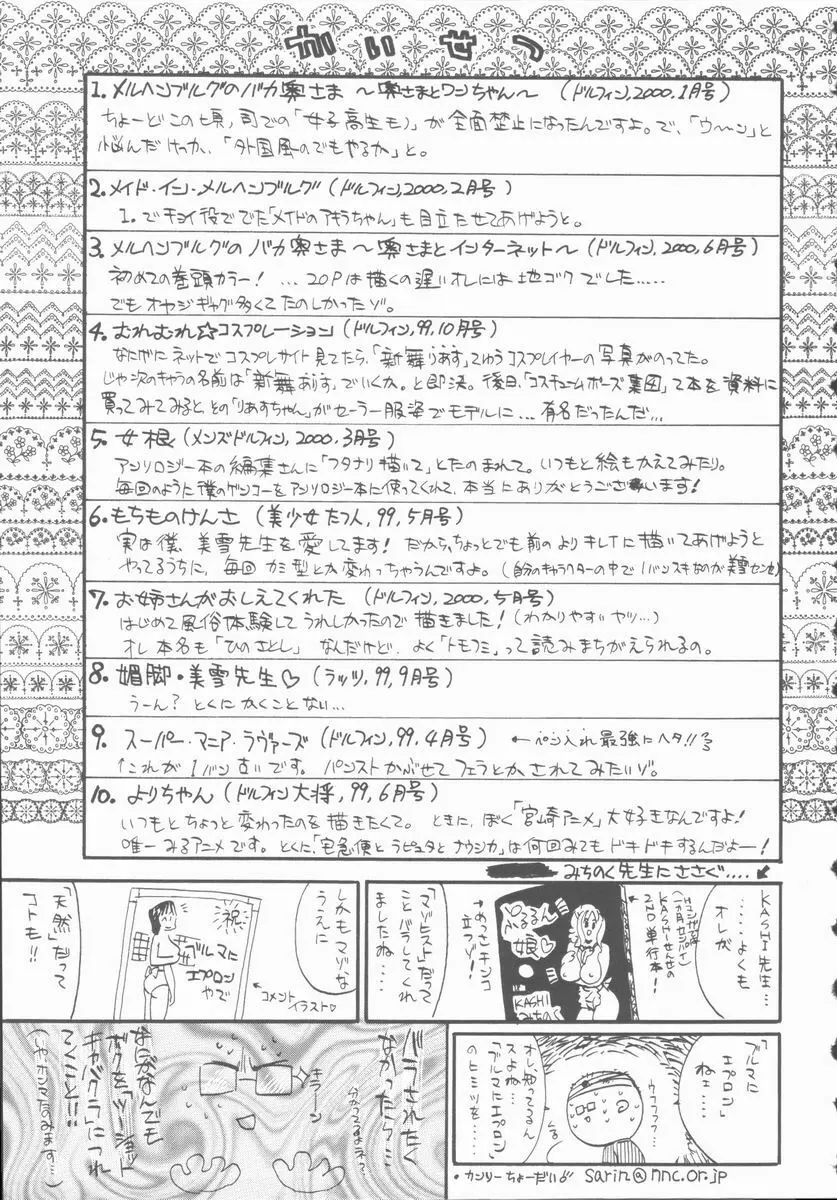 かいせつ
1. メルヘンブルグのバカ奥さま 〜奥さまとワンちゃん〜 (ドルフィン, 2000, 1月号)
ちょーどこの頃、司での「女子高生もの」が全面禁止になったんですよ。で、「ウ〜ン」と
悩んだけっか、「外国風のでもやるか」と。
2. メイド・イン・メルヘンブルグ (ドルフィン, 2000, 2月号)
1. でチョイ役ででた「メイドのアキラちゃん」も目立たせてあげようと。
3. メルヘンブルグのバカ奥さま 〜奥さまとインターネット〜 (ドルフィン, 2000, 6月号)
初めての巻頭カラー! ...20Pは描くの遅いオレには地ゴクでした.....
でもオヤジギャグ多くてたのしかったゾ。
4. むれむれ☆コスプレーション (ドルフィン, 99, 10月号)
なにげにネットでコスプレサイト見てたら、「新舞りあす」てゆうコスプレイヤーの写真がのってた。
じゃ次のキャラの名前は「新舞ありす」でいくか。と即決。後日、「コスチュームポーズ集団」て本を資料に
買ってみてみると、その「りあすちゃん」がセーラー服姿でモデルに...有名だったんだ...
5. 女根 (メンズドルフィン, 2000, 3月号)
アンソロジー本の編集さんに「フタナリ描いて」とたのまれて。いつもと絵もかえてみたり。
毎回のように僕のゲンコーをアンソロジー本に使ってくれて、本当にありがとうございます!
6. もちものけんさ (美少女たつ人, 99, 5月号)
実は僕、美雪先生を愛してます! だから、ちょっとでも前のよりキレイに描いてあげようと
やってるうちに、毎回カミ型とか変わっちゃうんですよ。(自分のキャラクターの中で1バンスキなのが美雪センセ)
7. お姉さんがおしえてくれた (ドルフィン, 2000, 5月号)
はじめて風俗体験してうれしかったので描きました! (わかりやすいヤツ...)
オレ本名も「ひのさとし」なんだけど、よく「トモフミ」って読みまちがえられるの。
8. 媚脚・美雪先生♡ (ラッツ, 99, 9月号)
うーん? とくにかくことない...
9. スーパー・マニア・ラヴァーズ (ドルフィン, 99, 4月号) ←ペン入れ最強にヘタ!!
↑これが1バン古いです。パンストかぶせてフェラとか、されてみたいゾ。
10. よりちゃん (ドルフィン大将, 99, 6月号)
いつもとちょっと変わったのを描きたくて。ときに、ぼく「宮崎アニメ」大好きなんですよ!
唯一みるアニメです。とくに、「宅急便とラピュタとナウシカ」は何回みてもドキドキするんだよー!
みちのく先生にささぐ....
KASHI先生...
......よくも
オレが
KASHIせんせの
2ND単行本!
ぷるるん
娘♡
KASHI
みちのく
めっさチンコ
立つゾ!
「マゾヒスト」だって
ことバラしてくれ
ましたね...
しかもマゾな
うえに
祝
ブルマに
エプロン
やで
コメント
イラスト♡
「天然」だって
コトも!!
「ブルマに
エプロン」
ねェ...
ウフフフフ
オレ、知ってるん
スよね...
「ブルマにエプロン」
のヒミツを...
・カンソーちょーだい sarin@nnc.or.jp
バラされたく
なかったら...
分かってるよネェ?
キラーン
なにがなんでも
ボクを「ツーショット
キャバクラ」につれ
てくこと!!!
(いやホンマたのみます...)